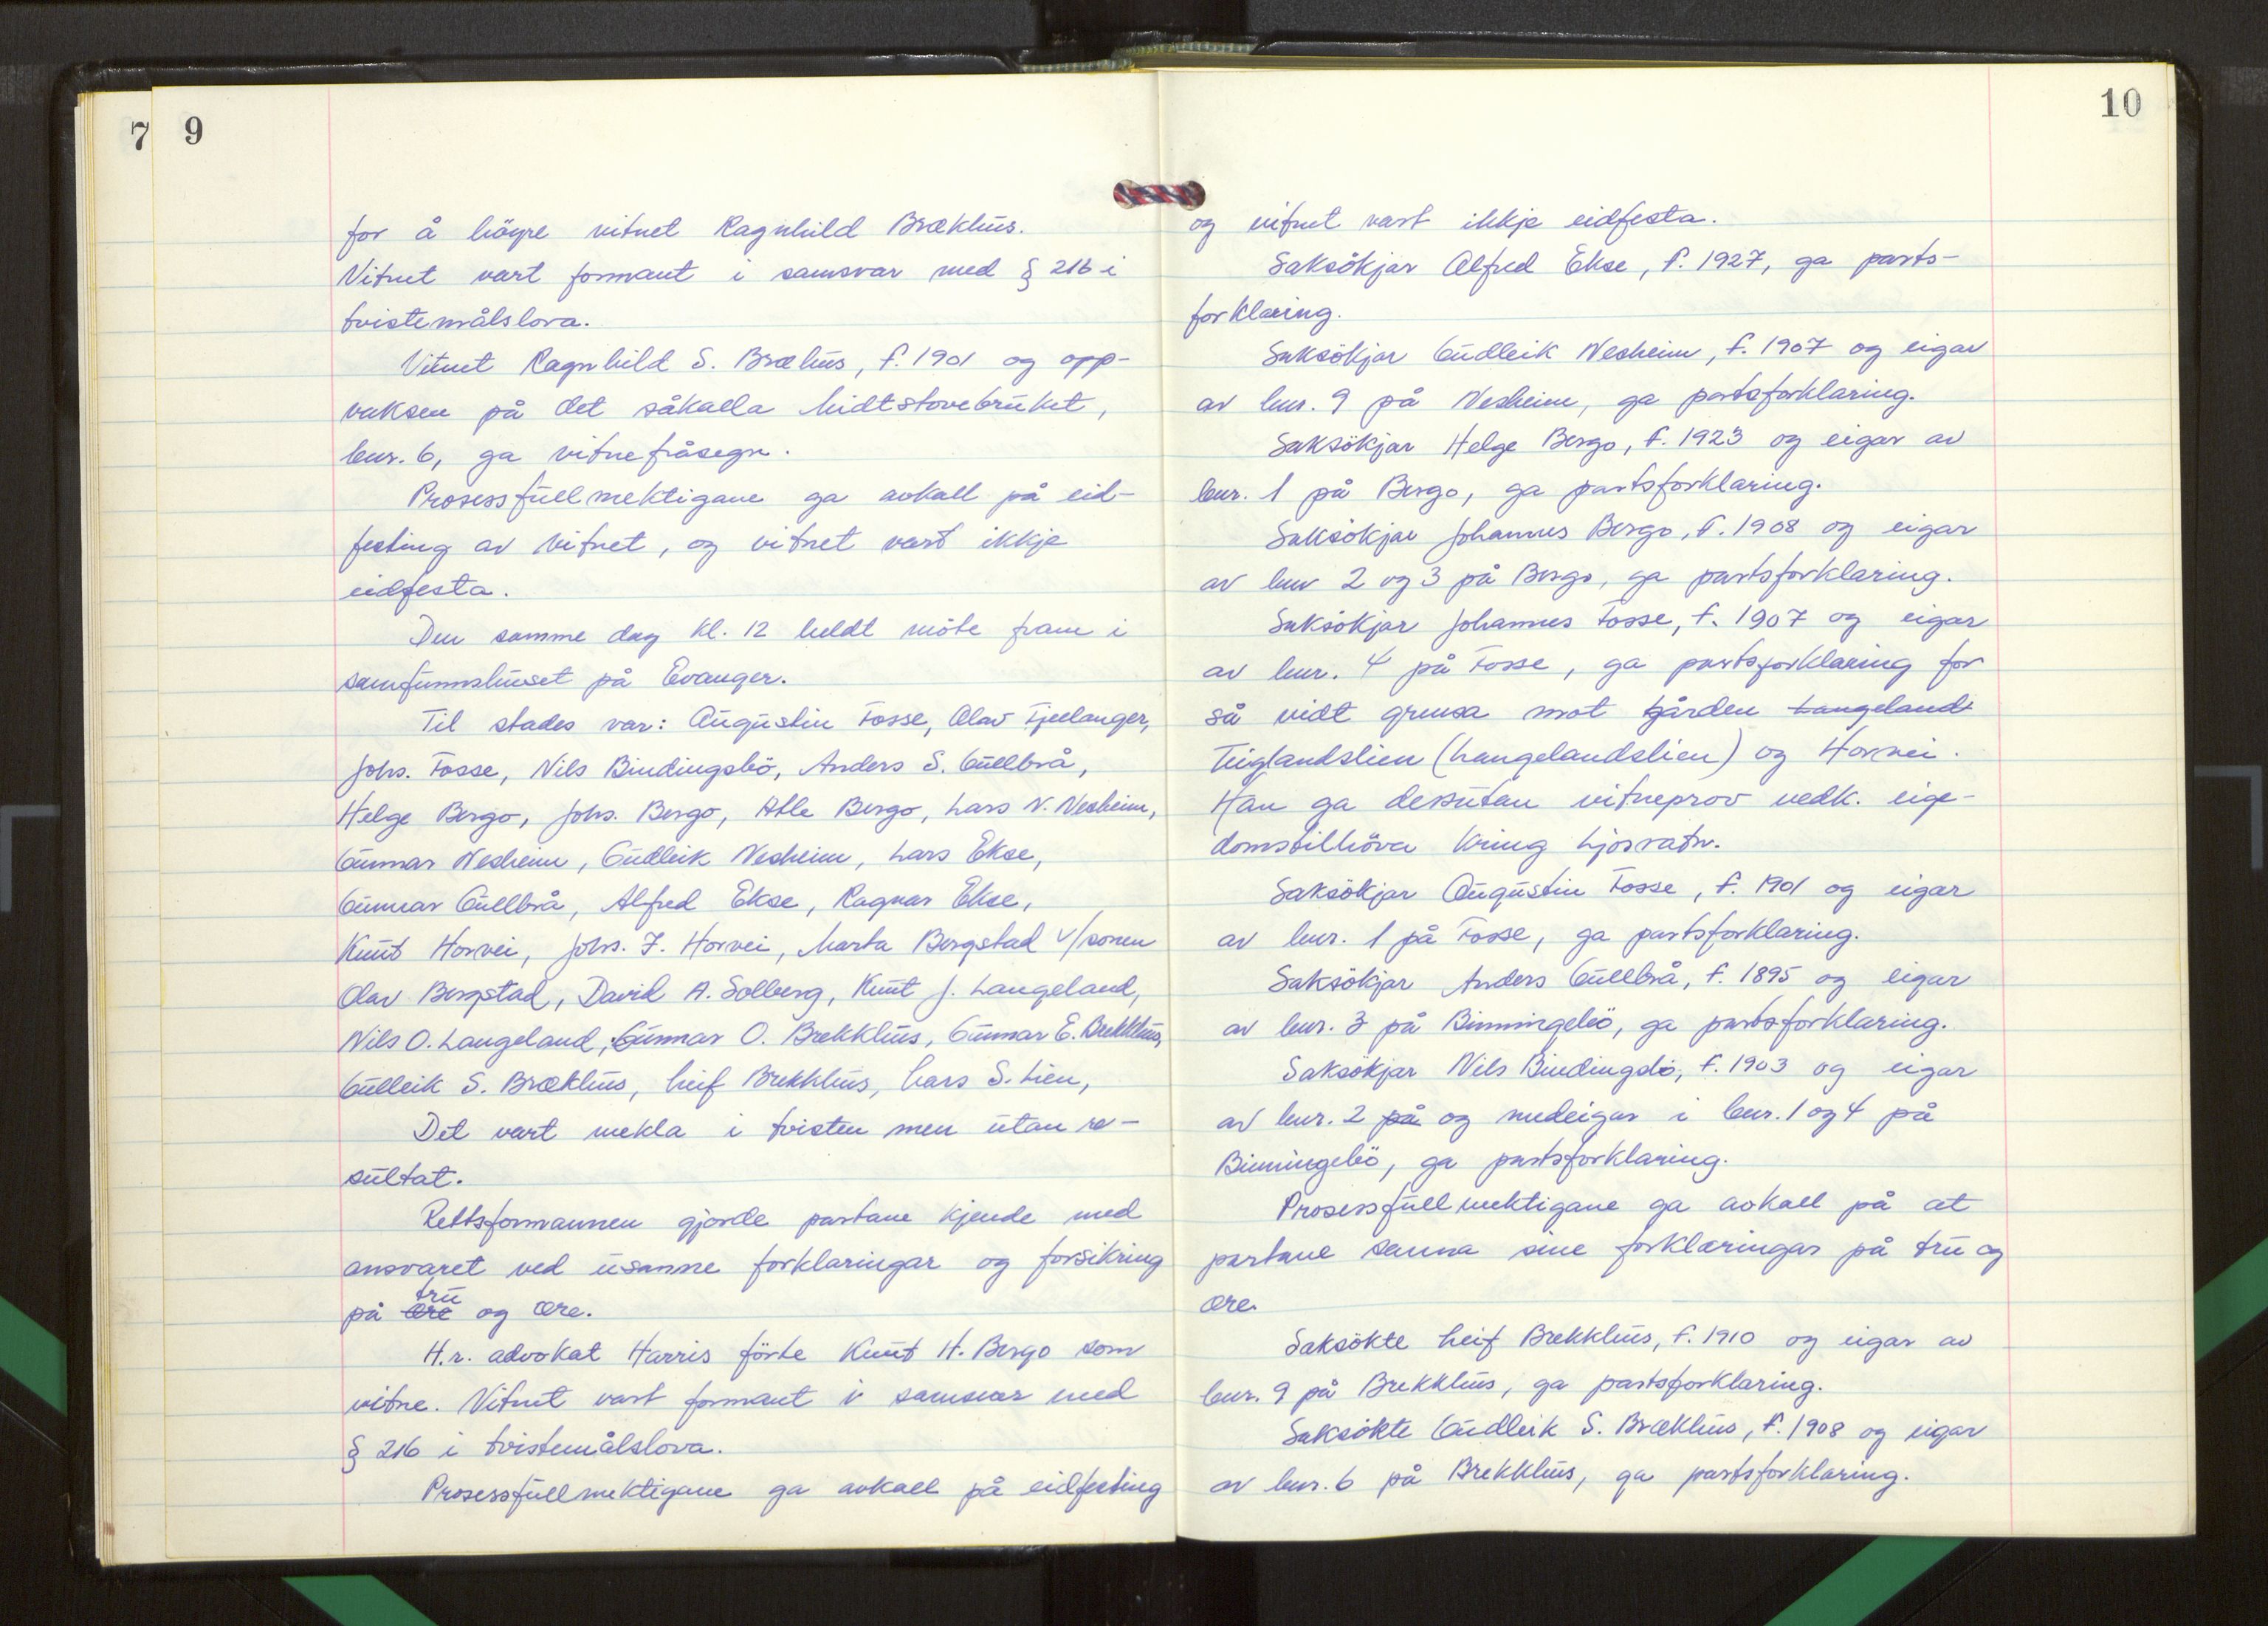 7 9
for å höyre vitnet Ragnhild Brækhus.
Vitnet vart formant i samsvar med § 216 i
tvistemålslova.
Vitnet Ragnhild S. Bræhus, f. 1901 og opp-
vaksen på det såkalla Midtstovebruket,
bnr. 6, ga vitnefråsegn.
Prosessfullmektigane ga avkall på eid-
festing av vitnet, og vitnet vart ikkje
eidfesta.
Den samme dag kl. 12 heldt møte fram i
samfunnshuset på Evanger.
Til stades var: Augustin Fosse, Olav Fjellanger,
Johs. Fosse, Nils Bindingsbö, Anders S. Gullbrå,
Helge Bergo, Johs. Bergo, Atle Bergo, Lars N. Nesheim,
Gunnar Nesheim, Gudleik Nesheim, Lars Ekse,
Gunnar Gullbrå, Alfred Ekse, Ragnar Ekse,
Knut Horvei, Johs. J. Horvei, Marta Bergstad v/sonen
Olav Bergstad, David A. Solberg, Knut J. Langeland,
Nils O. Langeland, Gunnar O. Brekkhus, Gunnar E. Brekkhus,
Gulleik S. Bræklus, Leif Brekkhus, Lars S. Lien,
Det vart mekla i tvisten men utan re-
sultat.
Rettsformannen gjorde partane kjende med
ansvaret ved usanne forklaringar og forsikring
på ære tru og ære.
H.r. advokat Harris förte Knut H. Bergo som
vitne. Vitnet vart formant i samsvar med
§ 216 i tvistemålslova.
Prosessfullmektigane ga avkall på eidfesting
10
og vitnet vart ikkje eidfesta.
Saksökjar Alfred Ekse, f. 1927, ga parts-
forklaring.
Saksökjar Gudleik Nesheim, f. 1907 og eigar
av bnr. 9 på Nesheim, ga partsforklaring.
Saksökjar Helge Bergo, f. 1923 og eigar av
bnr. 1 på Bergo, ga partsforklaring.
Saksökjar Johannes Bergo, f. 1908 og eigar
av bnr 2 og 3 på Bergo, ga partsforklaring.
Saksökjar Johannes Fosse, f. 1907 og eigar
av bnr. 4 på Fosse, ga partsforklaring for
så vidt grensa mot gården Langeland
Tuglandslien (Langelandslien) og Horvei.
Han ga dessutan vitneprov vedk. eige-
domstilhöva kring Ljosvatn.
Saksökjar Augustin Fosse, f. 1901 og eigar
av bnr. 1 på Fosse, ga partsforklaring.
Saksökjar Anders Gullbrå, f. 1895 og eigar
av bnr. 3 på Binningebö, ga partsforklaring.
Saksökjar Nils Bindingsbö, f. 1903 og eigar
av bnr. 2 på og medeigar i bnr. 1 og 4 på
Binningebö, ga partsforklaring.
Prosessfullmektigane ga avkall på at
partane sanna sine forklaringar på tru og
ære.
Saksökte Leif Brekkhus, f. 1910 og eigar av
bnr. 9 på Brekkhus, ga partsforklaring.
Saksökte Gudleik S. Bræklus, f. 1908 og eigar
av bnr. 6 på Brekkhus, ga partsforklaring.